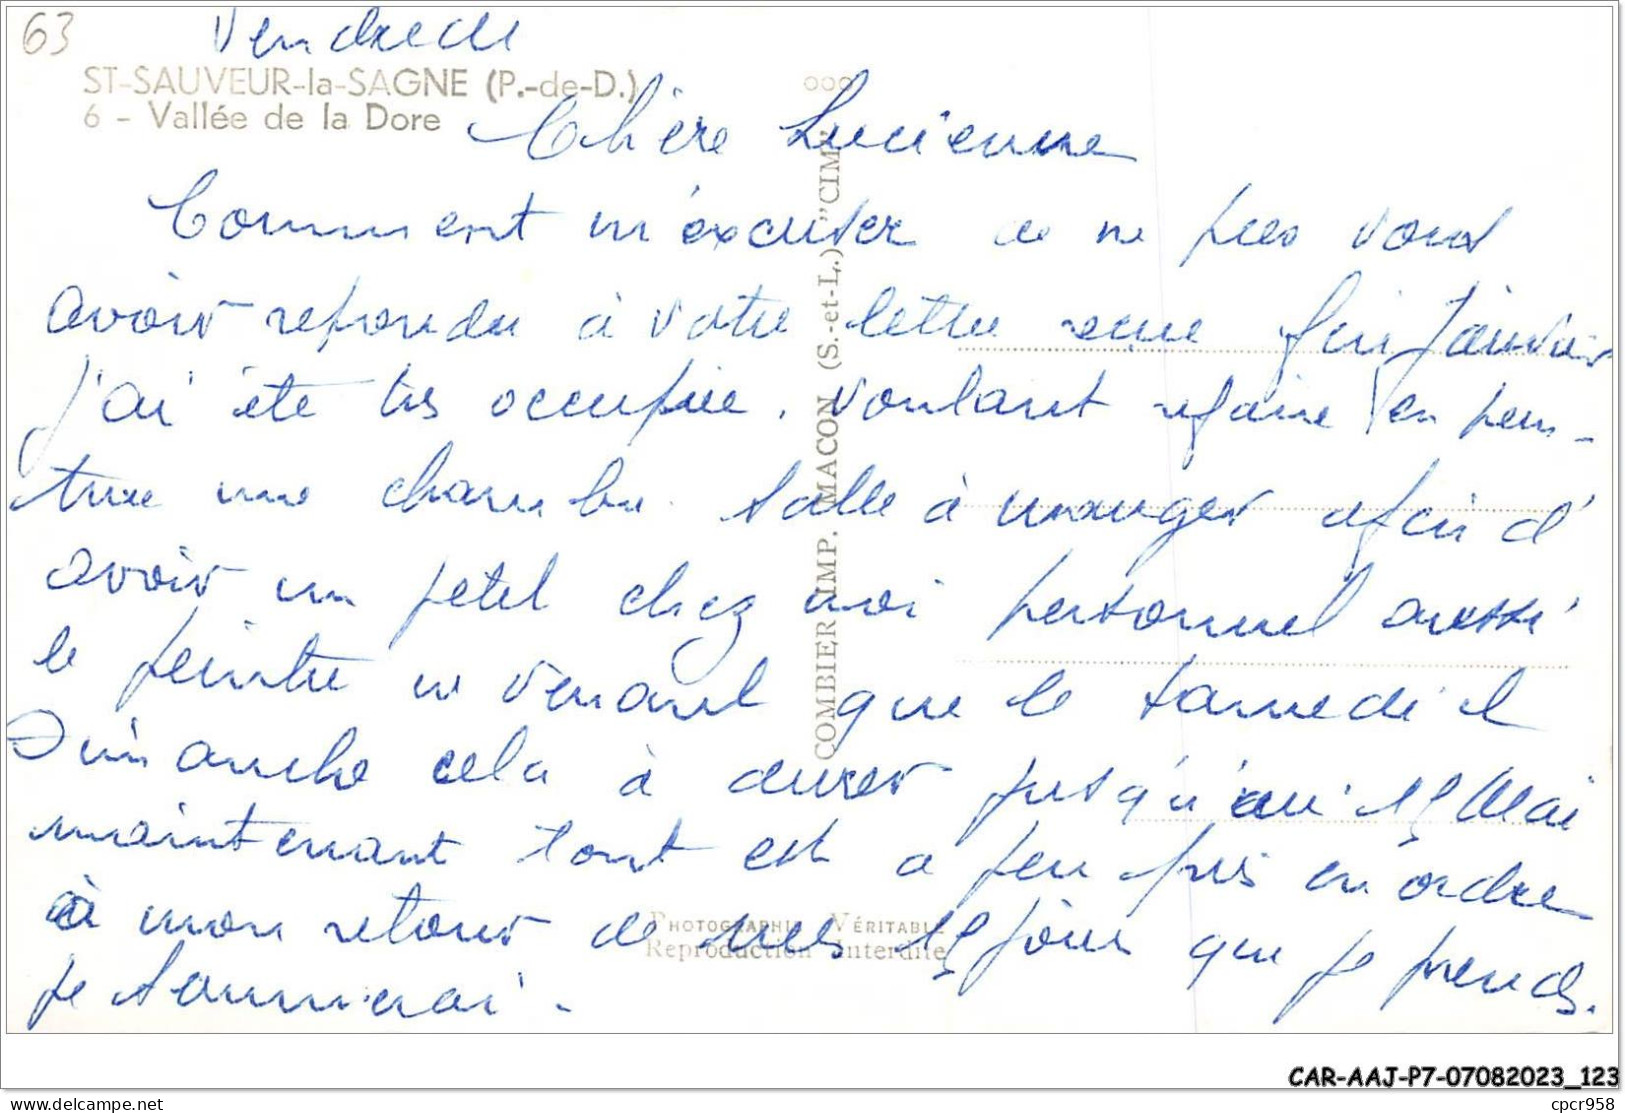 63
Vendredi
ST-SAUVEUR-la-SAGNE (P.-de-D.)
6 - Vallée de la Dore
Chère Lucienne
Comment m'excuser de ne pas vous
avoir repondu à votre lettre fin Janvier
j'ai été très occupée. voulant refaire en pein-
ture une chambre. salle à manger afin d'
avoir un petit chez moi personnel aussi
le peintre ne venant que le samedi et
Dimanche cela à durer jusqu'au 15 Mai
maintenant tout est a peu pris en ordre
à mon retour de mes 15 jours que je prends.
je
COMBIER IMP. MACON (S.-et-L.) "CIM"
PHOTOGRAPHIE VÉRITABLE
Reproduction Interdite
CAR-AAJ-P7-07082023_123
delcampe.net
cpcr958